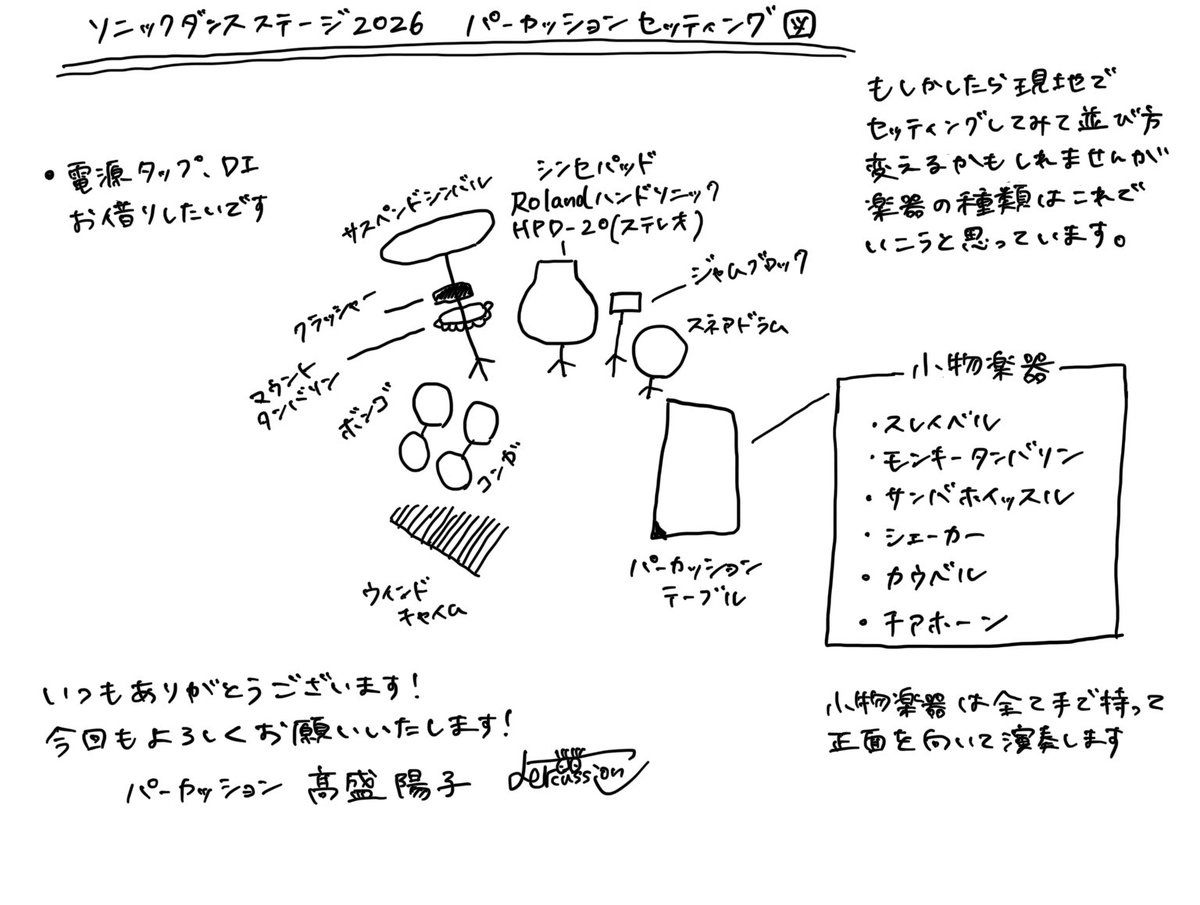 ソニックダンスステージ2026 パーカッションセッティング図
もしかしたら現地で
セッティングしてみて並び方
変えるかもしれませんが
楽器の種類はこれで
いこうと思っています。
・電源タップ、DI
お借りしたいです
サスペンドシンバル
シンセパッド
Rolandハンドソニック
HPD-20(ステレオ)
ジャムブロック
スネアドラム
クラッシャー
マウント
タンバリン
ボンゴ
コンガ
ウインド
チャイム
パーカッション
テーブル
小物楽器
・スレイベル
・モンキータンバリン
・サンバホイッスル
・シェーカー
・カウベル
・チアホーン
小物楽器は全て手で持って
正面を向いて演奏します
いつもありがとうございます!
今回もよろしくお願いいたします!
パーカッション 髙盛陽子